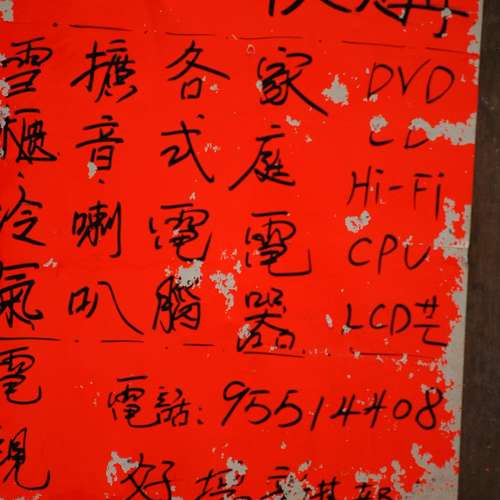 DVD
CD
Hi-Fi
CPU
LCD芒
家庭電器
各式電腦
擴音喇叭
雪櫃冷氣電視
電話:95514408
好